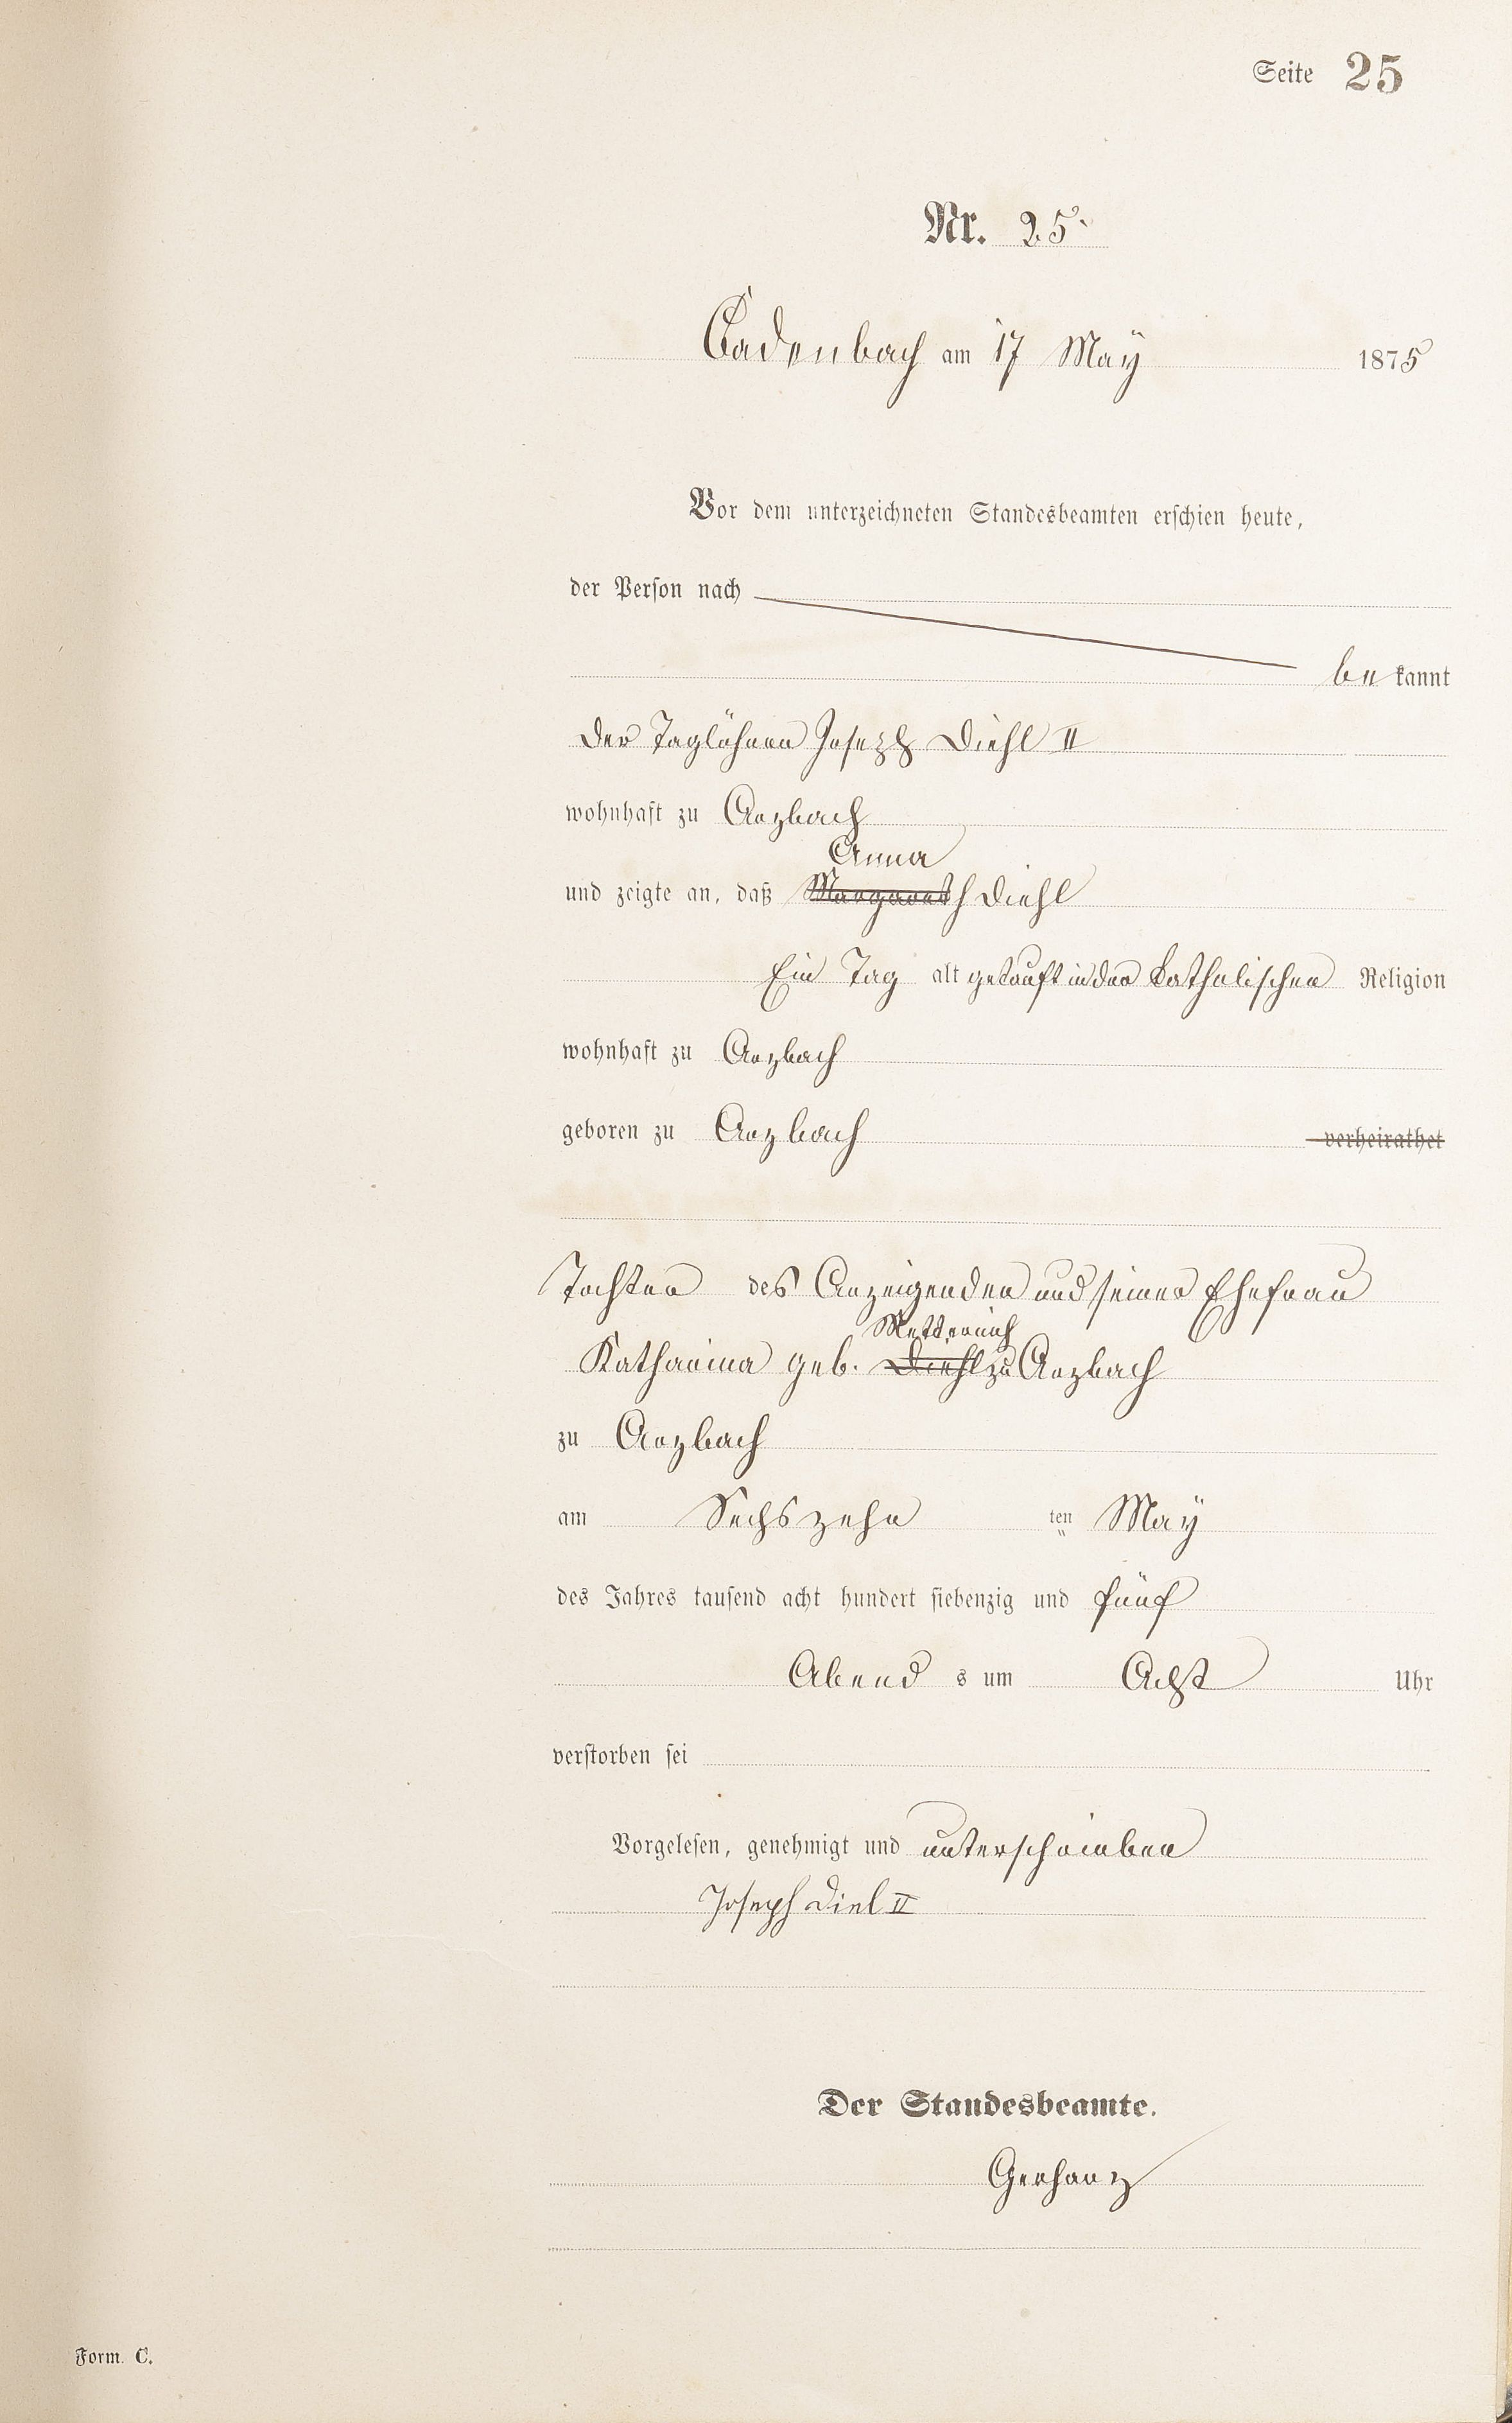 Seite 25
Nr. 25
Cadenbach am 17 May 1875
Vor dem unterzeichneten Standesbeamten erschien heute,
der Person nach
bekannt
der Taglöhner Joseph Diehl II
wohnhaft zu Arzbach
Anna
und zeigte an, daß Margareth Diehl
Ein Tag alt getauft in der katholischen Religion
wohnhaft zu Arzbach
geboren zu Arzbach verheirathet
Tochter des Anzeigenden und seiner Ehefrau
Metternich
Katharina geb. Diehl zu Arzbach
zu Arzbach
am Sechszehn ten May
des Jahres tausend acht hundert siebenzig und fünf
Abend s um Acht Uhr
verstorben sei
Vorgelesen, genehmigt und unterschrieben
Joseph Diel II
Der Standesbeamte.
Gerharz
Form. C.